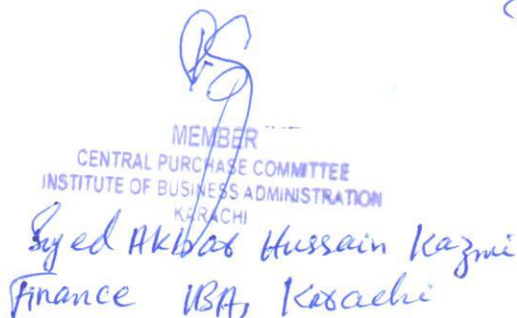 MEMBER
CENTRAL PURCHASE COMMITTEE
INSTITUTE OF BUSINESS ADMINISTRATION
KARACHI
Syed Akbar Hussain Kazmi
Finance IBA, Karachi